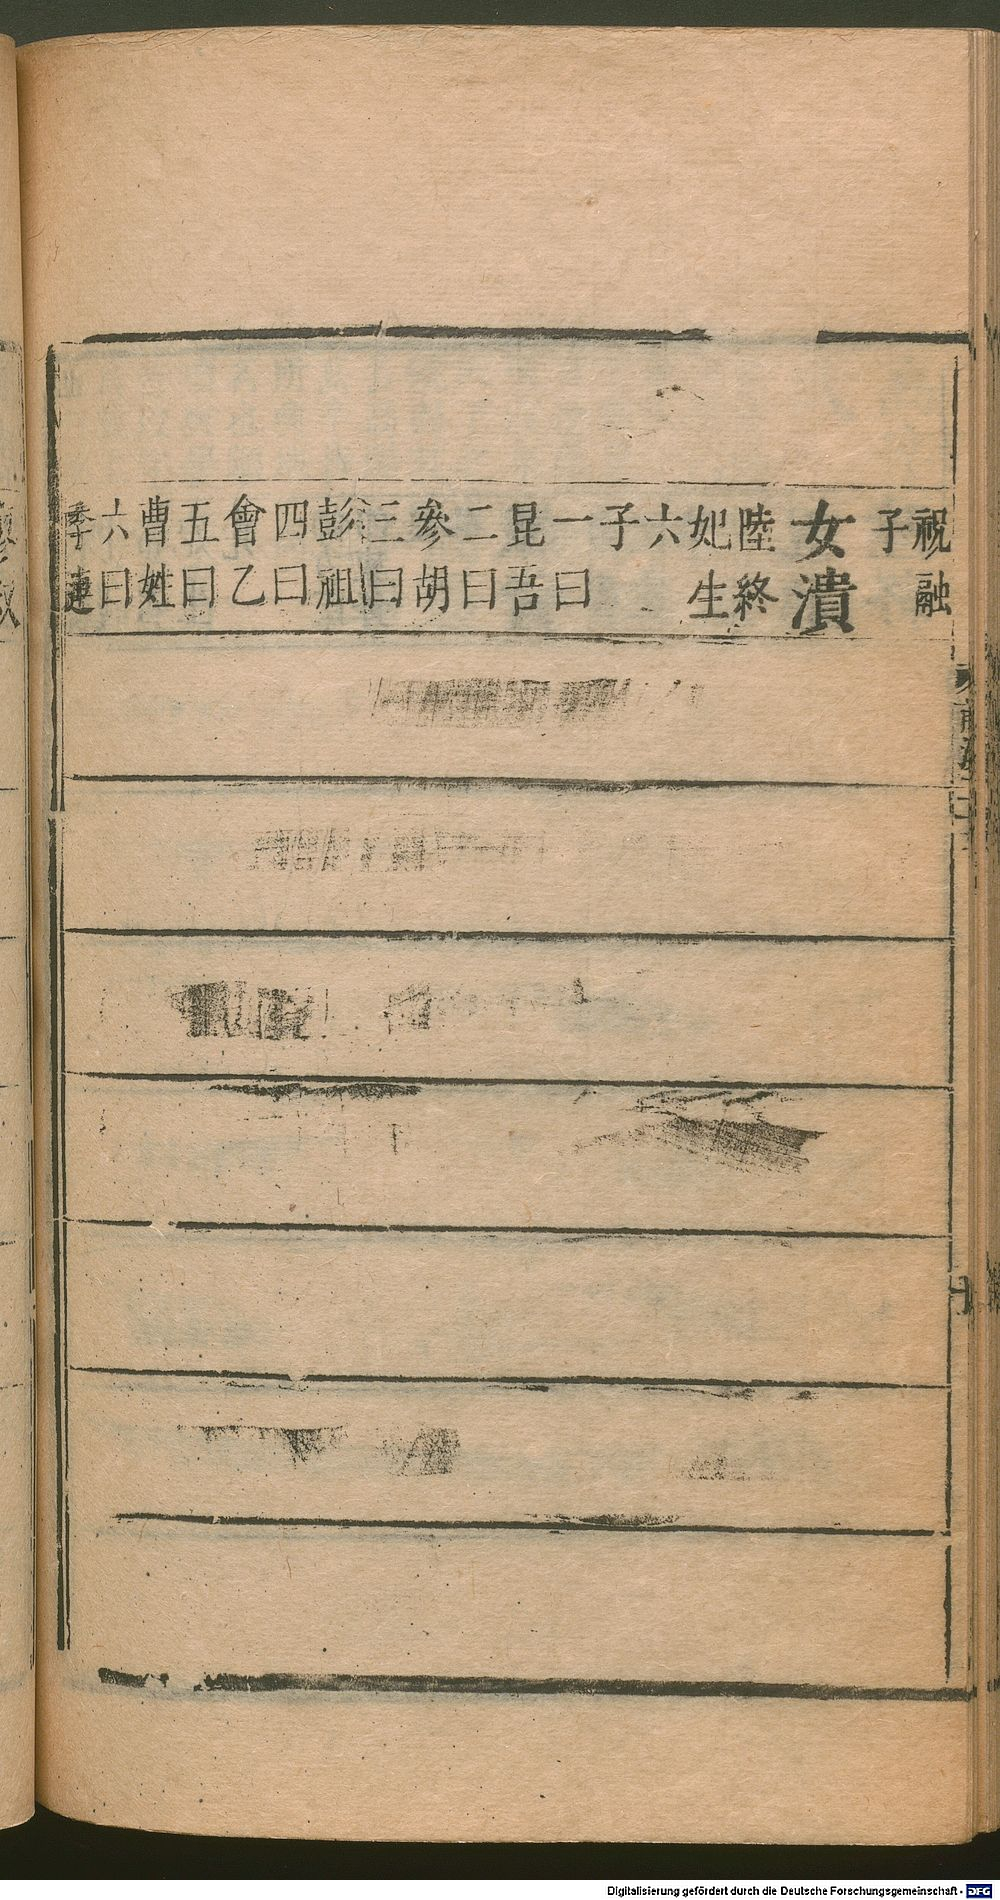 祝融
子
女潰
陸終
妃生
六
子
一曰
昆吾
二曰
參胡
三曰
彭祖
四曰
會乙
五曰
曹姓
六曰
季連
Digitalisierung gefördert durch die Deutsche Forschungsgemeinschaft - DFG